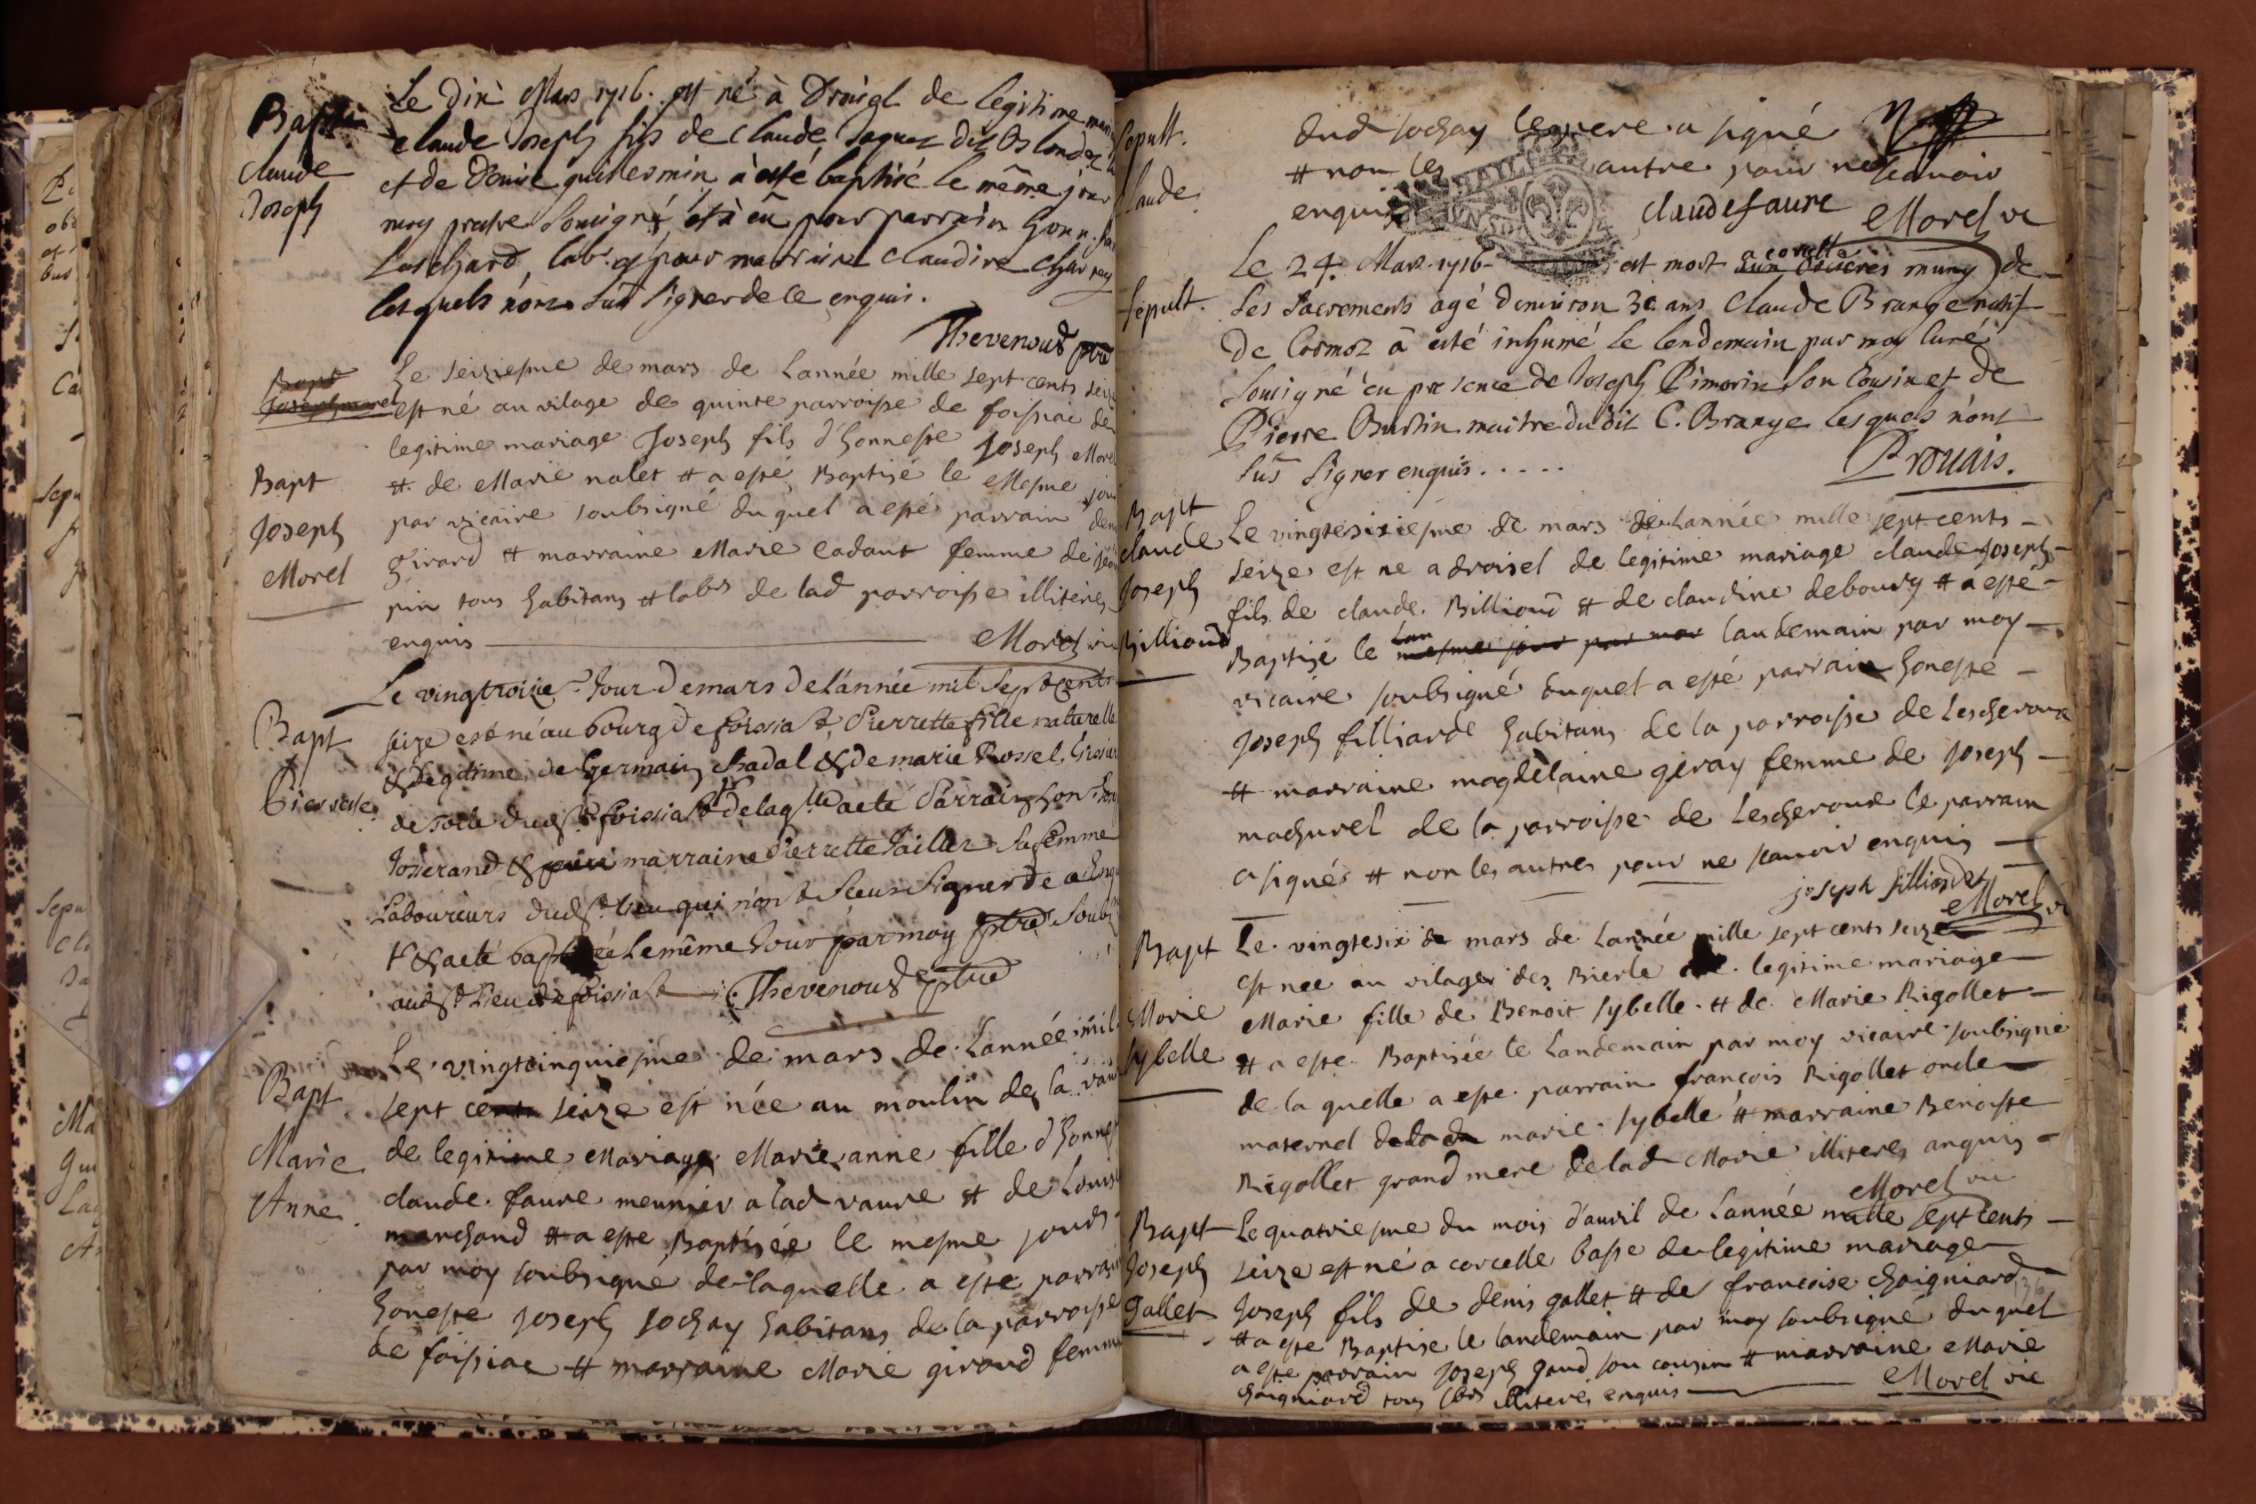 Baptis
Claude
Joseph
Le dix Mars 1716. est né à Droisel de legitime mari
Claude Joseph fils de Claude Joquet dit
et de Denise guillermin à esté baptisé le même jour
moy prestre Soussigné, et à eû pour parrain honn.
labr. et pour marraine Claudine Charnay
lesquels n'ont sûs signer de ce enquis.
Thevenoud ptre
Bapt
Joseph morel
Bapt
Joseph
Morel
Le seiziesme de mars de Lannée mille sept cents seize
est né au vilage de quinte parroisse de foissiac de
legitime mariage Joseph fils d'honneste Joseph Morel
et de Marie nalet et a esté Baptisé le mesme jour
par vicaire soubsigné du quel a esté parrain
girard et marraine Marie cadant femme de
pin tous habitans et labrs de lad parroisse illiterés
enquis Morel vic
Bapt
Pierrette
Le vingtroizie. Jour de mars de l'année mil Sept Cents
seize est né au bourg de foissiat, Pierrette fille naturelle
& Legitime de Germain Chadal & de marie Rossel,
de toile dud. foissiat de laqlle a eté Parrain hon.
Josserand & marraine Pierrette Paillet Sa femme
Laboureurs dud. lieu qui n'ont Sceus Signer de ce
& a eté baptisée Le même Jour par moy ptre Soubs
aud. Lieu de foissiat Thevenoud ptre
Bapt
Marie
Anne
Le vingtcinquiesme de mars de Lannée mil
sept cents seize est née au moulin de la vau
de legitime Mariage Marie anne fille d'honneste
claude faure meunier a lad vaure et de Louise
marchand et a esté Baptisée le mesme jours
par moy soubsigné de laquelle a esté parrain
honeste joseph jochay habitans de la parroisse
de foissiac et marraine Marie giroud femme
Sepult.
Claude
dud jochay le pere a signé
et non les autre pour ne scavoir
enquis claudefaure Morel vic
Sepult.
Le 24. Mars 1716 est mort a corcelle muny de
Les Sacrements agé d'environ 30 ans Claude Brange natif
De Cormoz â eté inhumé le lendemain par moy Curé
Soussigné en presence de Joseph Pimorin Son Cousin et de
Pierre Burtin maitre dudit C. Brange lesquels n'ont
sûs signer enquis.....
Prouais.
Bapt
claude
Joseph
Billioud
Le vingtesixiesme de mars de Lannée mille sept cents
seize est ne a droisel de legitime mariage claude Joseph
fils de claude Billioud et de claudine debourg et a esté
Baptisé le mesme jour par moy landemain par moy
vicaire soubsigné duquel a esté parrain honeste
joseph filliarde habitans de la parroisse de Lescheroux
et marraine magdelaine geray femme de joseph
machurel de la parroisse de Lescheroux le parrain
a signés et non les autres pour ne scavoir enquis
joseph filliardet
Morel vi
Bapt
Marie
sybelle
Le vingtesix de mars de Lannée mille sept cents seize
est nee au vilage des Bierle de legitime mariage
Marie fille de Benoit sybelle et de Marie Rigollet
et a esté Baptisée le Landemain par moy vicaire soubsigné
de la quelle a esté parrain françois Rigollet oncle
maternel de la da marie sybelle et marraine Benoiste
Rigollet grand mere de lad Marie illiteres anquis
Morel vic
Bapt
Joseph
Gallet
Le quatriesme du mois d'avril de Lannée mille sept cents
seize est né a corcelle basse de legitime mariage
Joseph fils de denis gallet et de francoise chaigniard
et a esté Baptisé le landemain par moy soubsigné duquel
a esté parrain joseph gaud son cousin et marraine Marie
chaigniard tous labrs illiterés enquis Morel vic